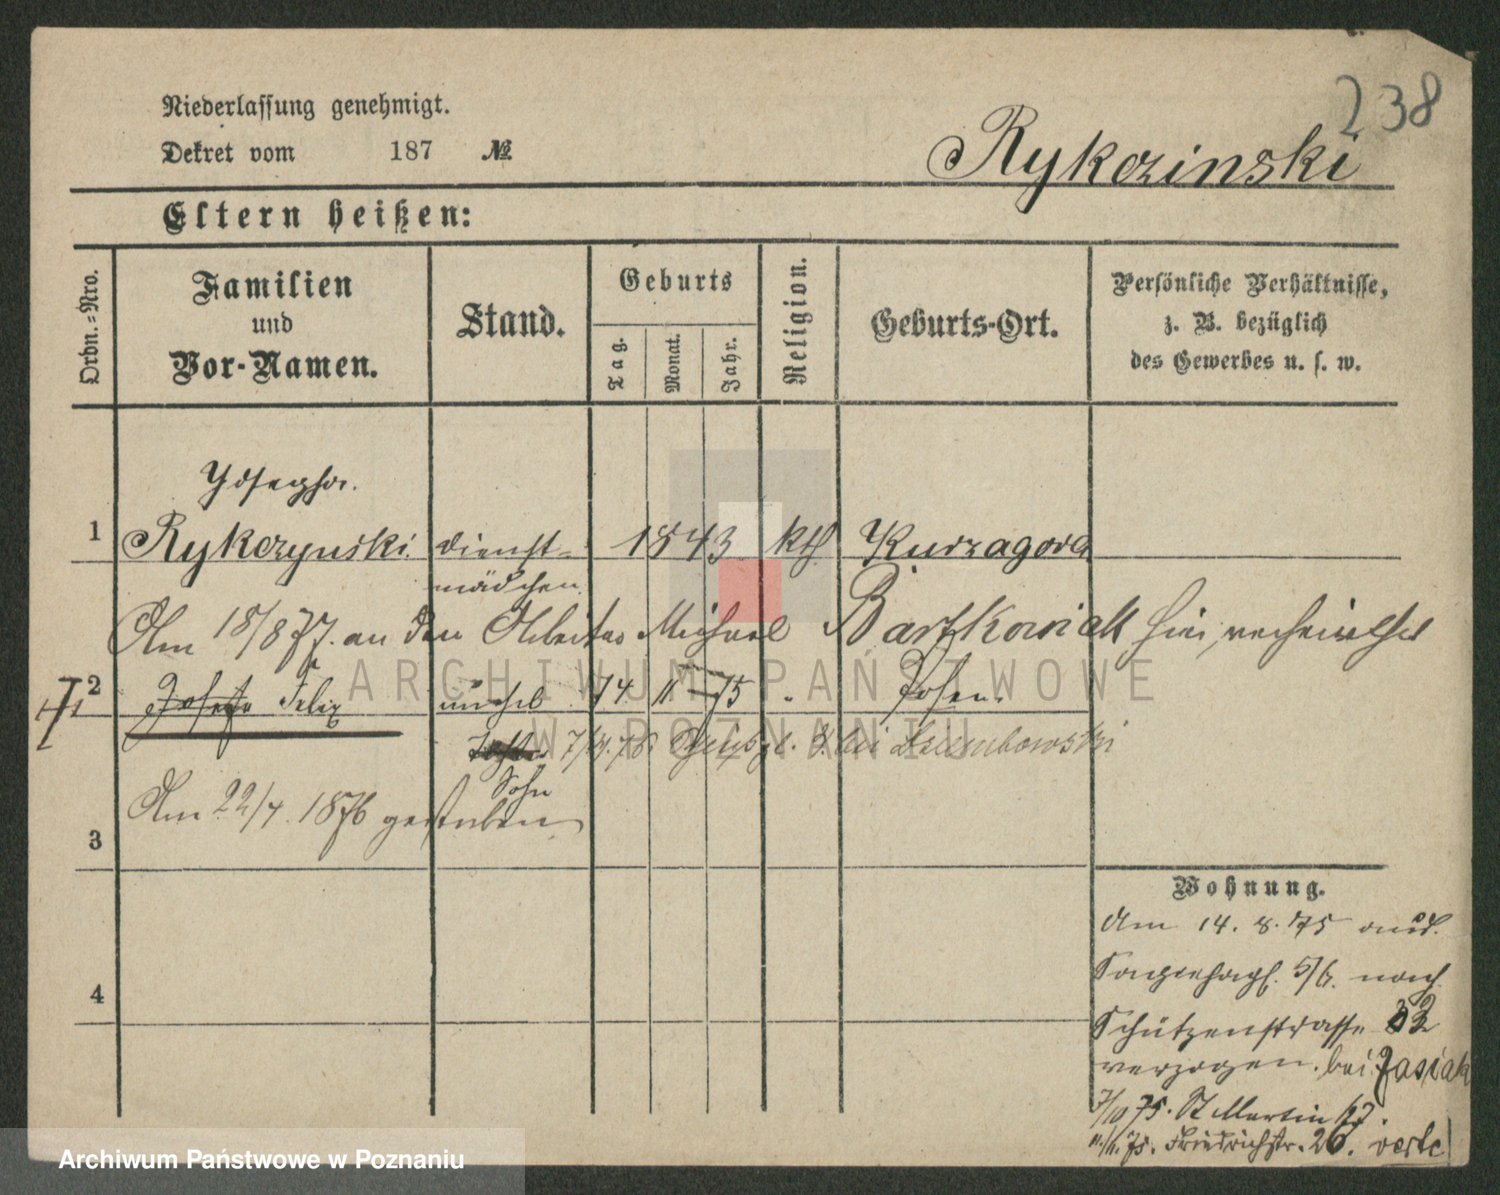 238
Niederlassung genehmigt.
Dekret vom 187 №
Rykczinski
Eltern heißen:
Ordn.-Nro.
Familien und Vor-Namen.
Stand.
Geburts
Tag.
Monat.
Jahr.
Religion.
Geburts-Ort.
Persönliche Verhältnisse,
z. B. bezüglich
des Gewerbes u. s. w.
Josepha.
1 Rykczynski. Dienst- 1843 kth Kurzagora
mädchen.
Am 18/8 77. an den Arbeiter Michael Bartkowiak hier, verheirathet
2 Josefa Felix unehel. 14 11 75 Posen.
7/4. 76 bei Dembowski
Sohn
Am 22/4. 1876 gestorben
3
4
Wohnung.
Am 14. 8. 75 aus.
5/6. nach
Schützenstrasse 32
verzogen. bei Jasiak
7/10 75. St Martin 67.
11/11. 75. Friedrichstr. 26. verte
ARCHIWUM PAŃSTWOWE
W POZNANIU
Archiwum Państwowe w Poznaniu